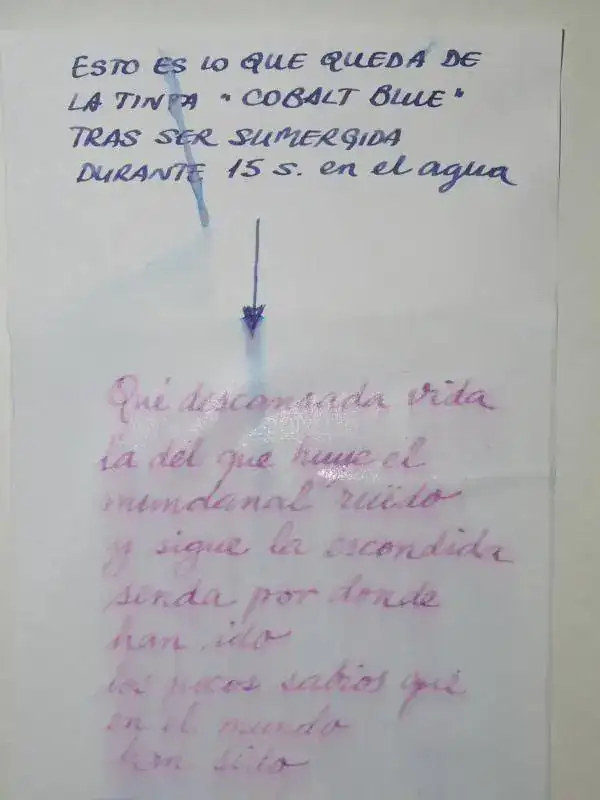 ESTO ES LO QUE QUEDA DE
LA TINTA "COBALT BLUE"
TRAS SER SUMERGIDA
DURANTE 15 s. en el agua
Qué descansada vida
la del que huye el
mundanal ruïdo
y sigue la escondida
senda por donde
han ido
los pocos sabios que
en el mundo
han sido